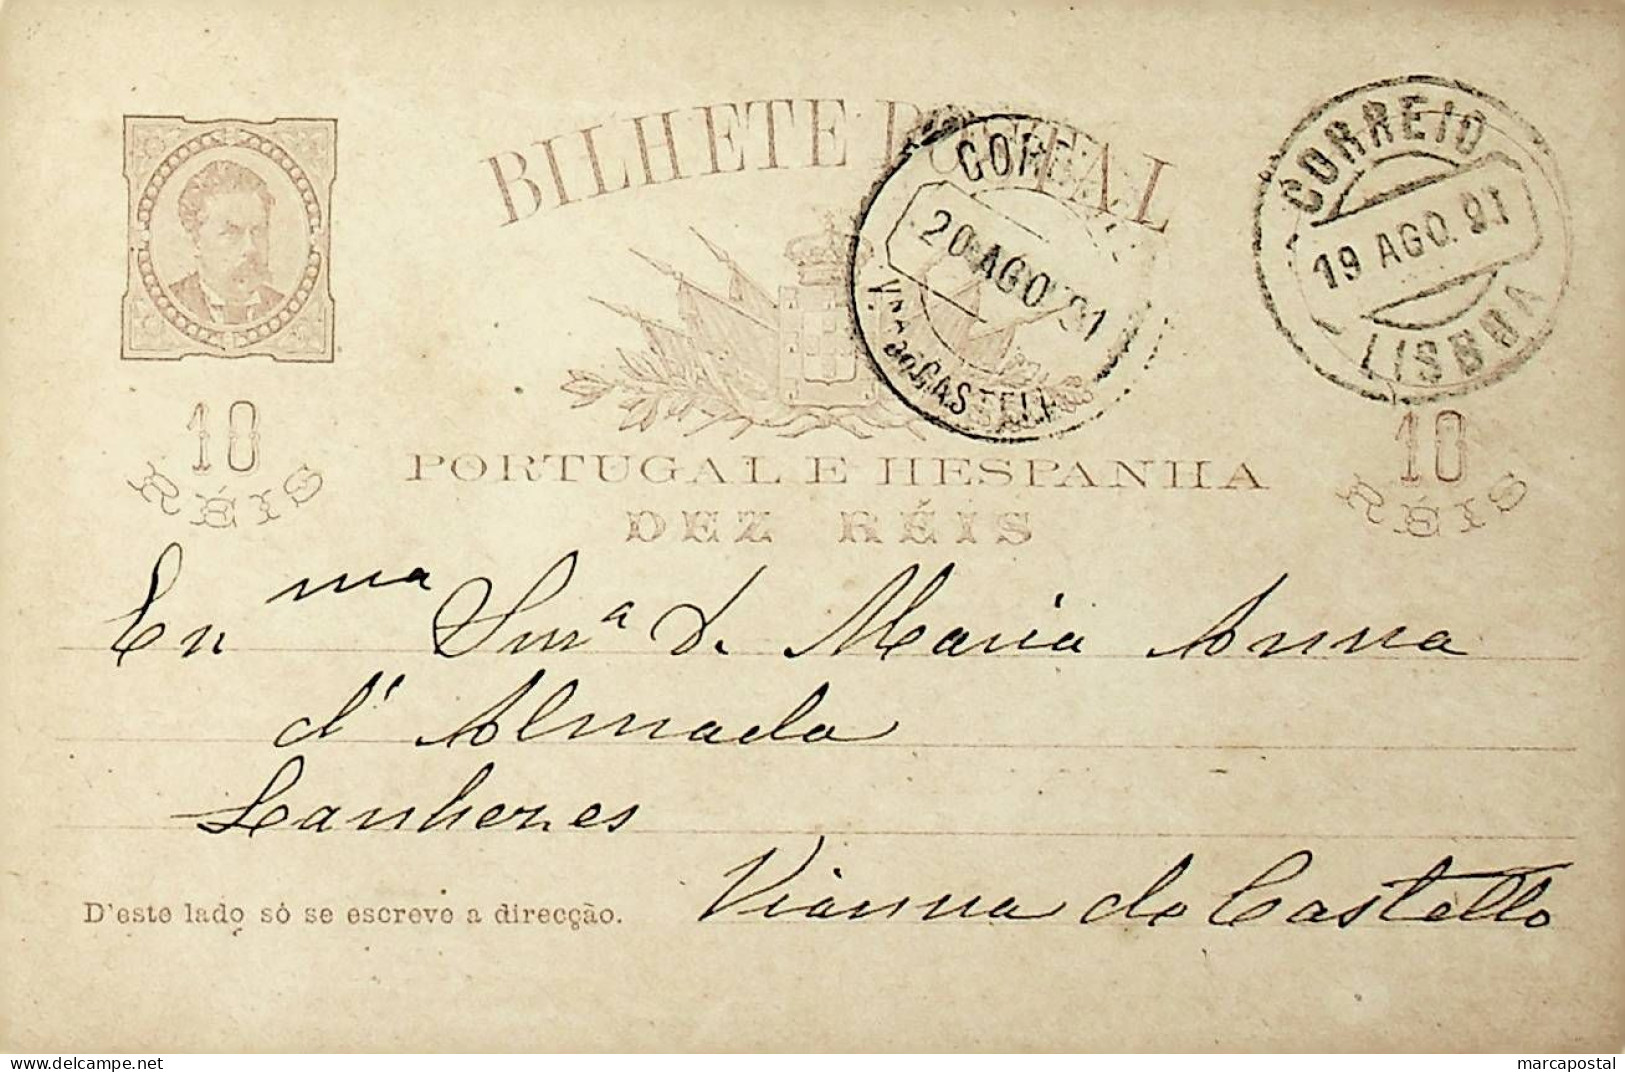 BILHETE POSTAL
CORREIO
19 AGO. 91
LISBOA
20 AGO 91
V.NA DO CASTELLO
10 RÉIS
10 RÉIS
PORTUGAL E HESPANHA
DEZ RÉIS
En ma Snr a D. Maria Anna
d' Almada
Lanhezes
Vianna do Castello
D'este lado só se escreve a direcção.
www.delcampe.net
marcapostal